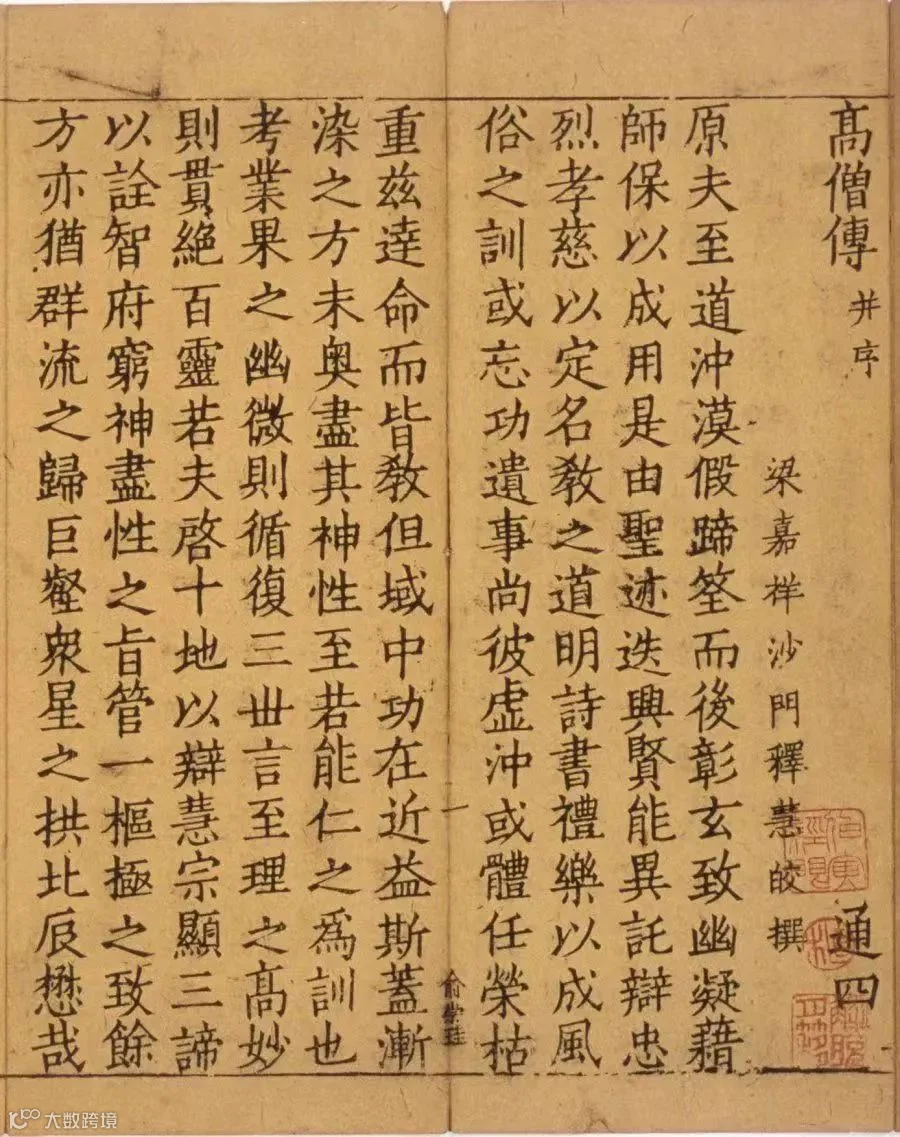 高僧傳 并序 通四
梁嘉祥沙門釋慧皎撰
原夫至道沖漠假蹄筌而後彰玄致幽凝藉
師保以成用是由聖迹迭興賢能異託辯忠
烈孝慈以定名敎之道明詩書禮樂以成風
俗之訓或忘功遺事尚彼虛沖或體任榮枯
重茲達命而皆敎但域中功在近益斯蓋漸
染之方未奧盡其神性至若能仁之爲訓也
考業果之幽微則循復三世言至理之高妙
則貫絶百靈若夫啓十地以辯慧宗顯三諦
以詮智府窮神盡性之旨管一樞極之致餘
方亦猶群流之歸巨壑衆星之拱北辰懋哉
大数跨境